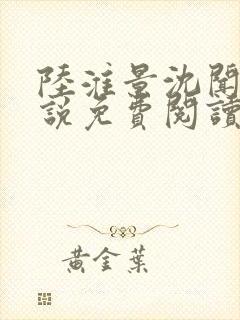 陸淮景沈聞
說免費閱讀
黃金葉